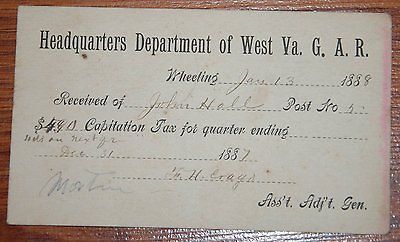 Headquarters Department of West Va. G. A. R.
Wheeling Jan 13 1888
Received of John Hall Post No 5
$4.90 Capitation Tax for quarter ending
Dec 31 1887
Ass't. Adj't. Gen.